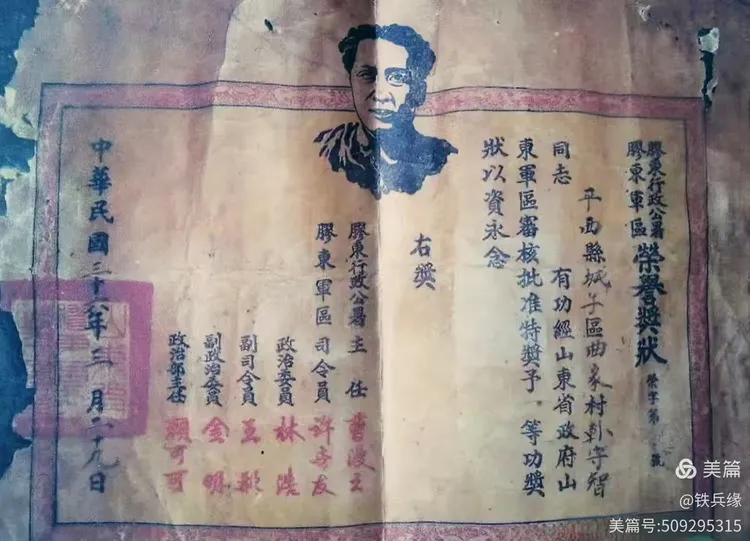 膠東行政公署
膠東軍區
榮譽獎狀
榮字第 號
平西縣城子區曲家村彭守智
同志 有功經山東省政府山
東軍區審核批准特獎予 等功獎
狀以資永念
右獎
膠東行政公署主任 曹漫之
膠東軍區司令員 許世友
政治委員 林浩
副司令員 王彬
副政治委員 金明
政治部主任 顏可可
中華民國三十六年三月二十九日
美篇
@铁兵缘
美篇号:509295315